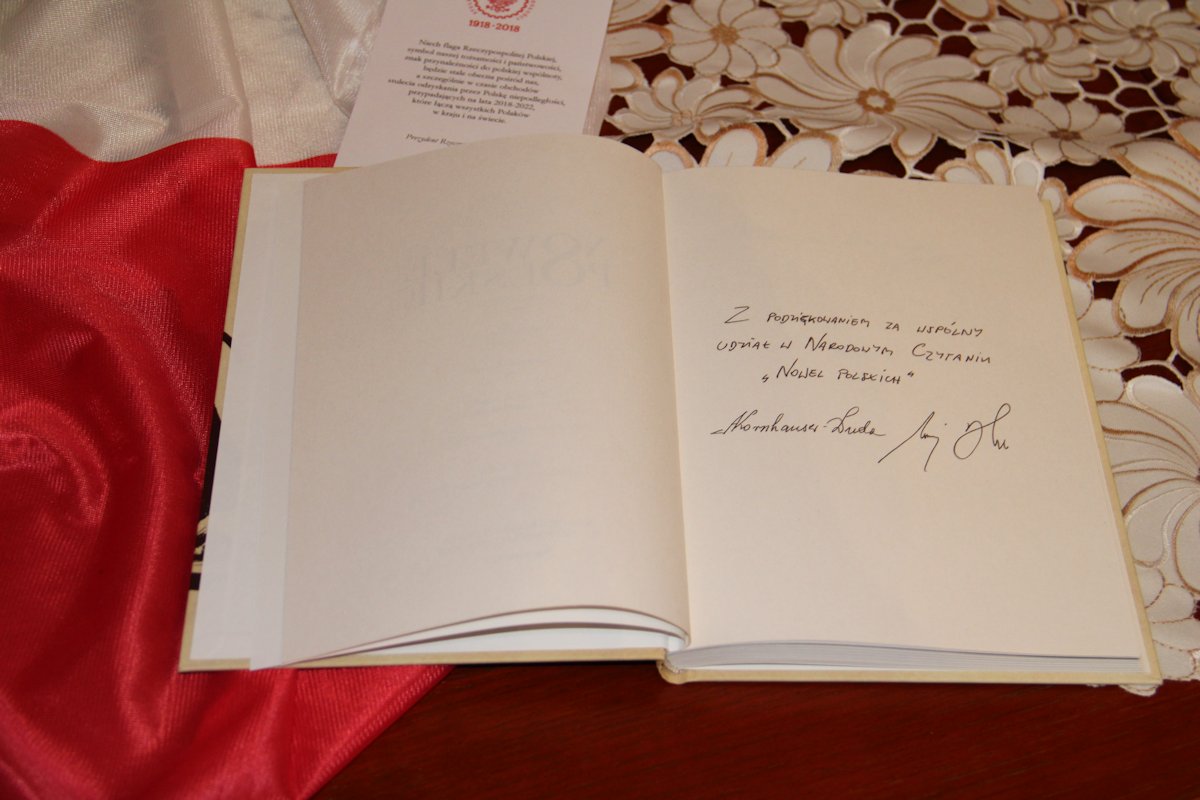 1918-2018
Niech flaga Rzeczypospolitej Polskiej,
symbol naszej tożsamości i państwowości,
znak przynależności do polskiej wspólnoty,
będzie stale obecna pośród nas,
a szczególnie w czasie obchodów
stulecia odzyskania przez Polskę niepodległości,
przypadających na lata 2018-2022,
które łączą wszystkich Polaków
w kraju i na świecie.
Prezydent
NOWELE
POLSKIE
Z PODZIĘKOWANIEM ZA WSPÓLNY
UDZIAŁ W NARODOWYM CZYTANIU
„NOWEL POLSKICH"
AKornhauser-Duda